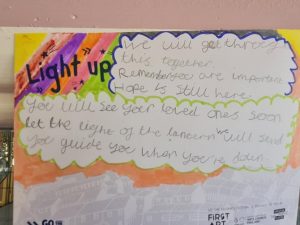 Light up
We will get through
this together.
Remember you are important
Hope is still here.
You will see your loved ones soon
let the light of the lantern we will send
you guide you when you're down.
GO
FIRST
ART